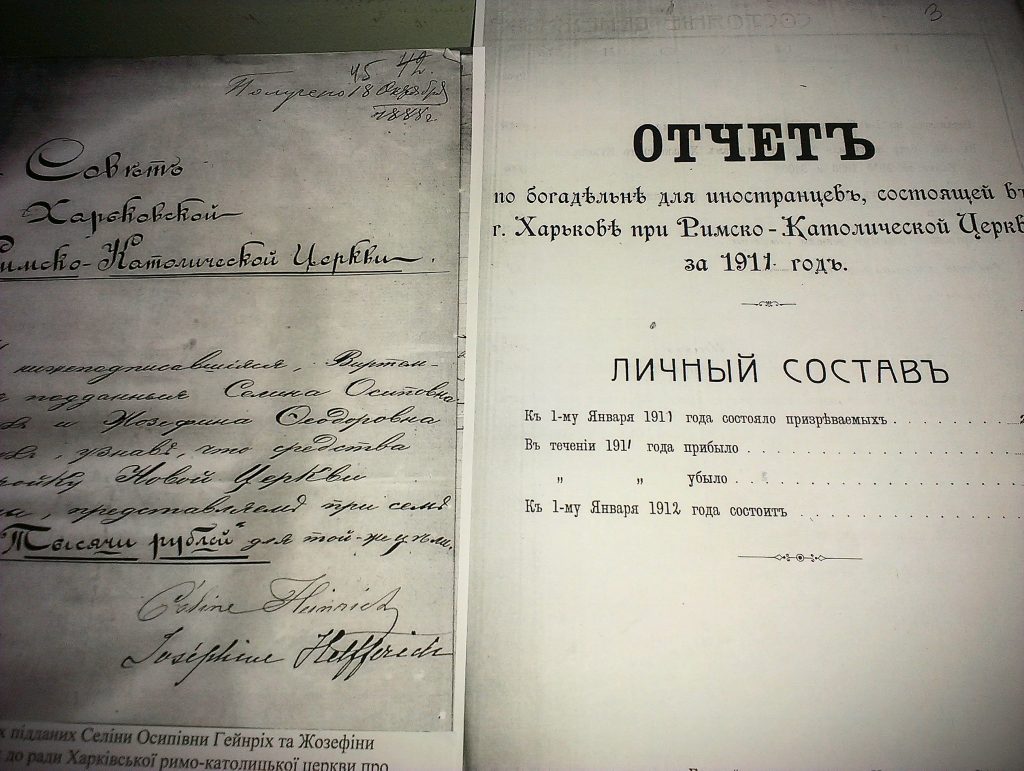 45 42.
Получено 18 Октября
1888 г.
Совѣтъ
Харьковской
Римско-Католической Церкви.
нижеподписавшіяся, Виртем-
подданныя Селина Осиповна
и Жозефина Ѳеодоровна
узнавъ, что средства
Новой Церкви
представляемъ при семъ
"Тысячи рублей" для той-же цѣли.
Céline Heinrich
Joséphine Helfferich
х підданих Селіни Осипівни Гейнріх та Жозефіни
до ради Харківської римо-католицької церкви про
3
ОТЧЕТЪ
по богадѣльнѣ для иностранцевъ, состоящей въ
г. Харьковѣ при Римско-Католической Церкв
за 1911 годъ.
ЛИЧНЫЙ СОСТАВЪ
Къ 1-му Января 1911 года состояло призрѣваемых
Въ теченіи 1911 года прибыло
„ „ убыло
Къ 1-му Января 1912 года состоитъ